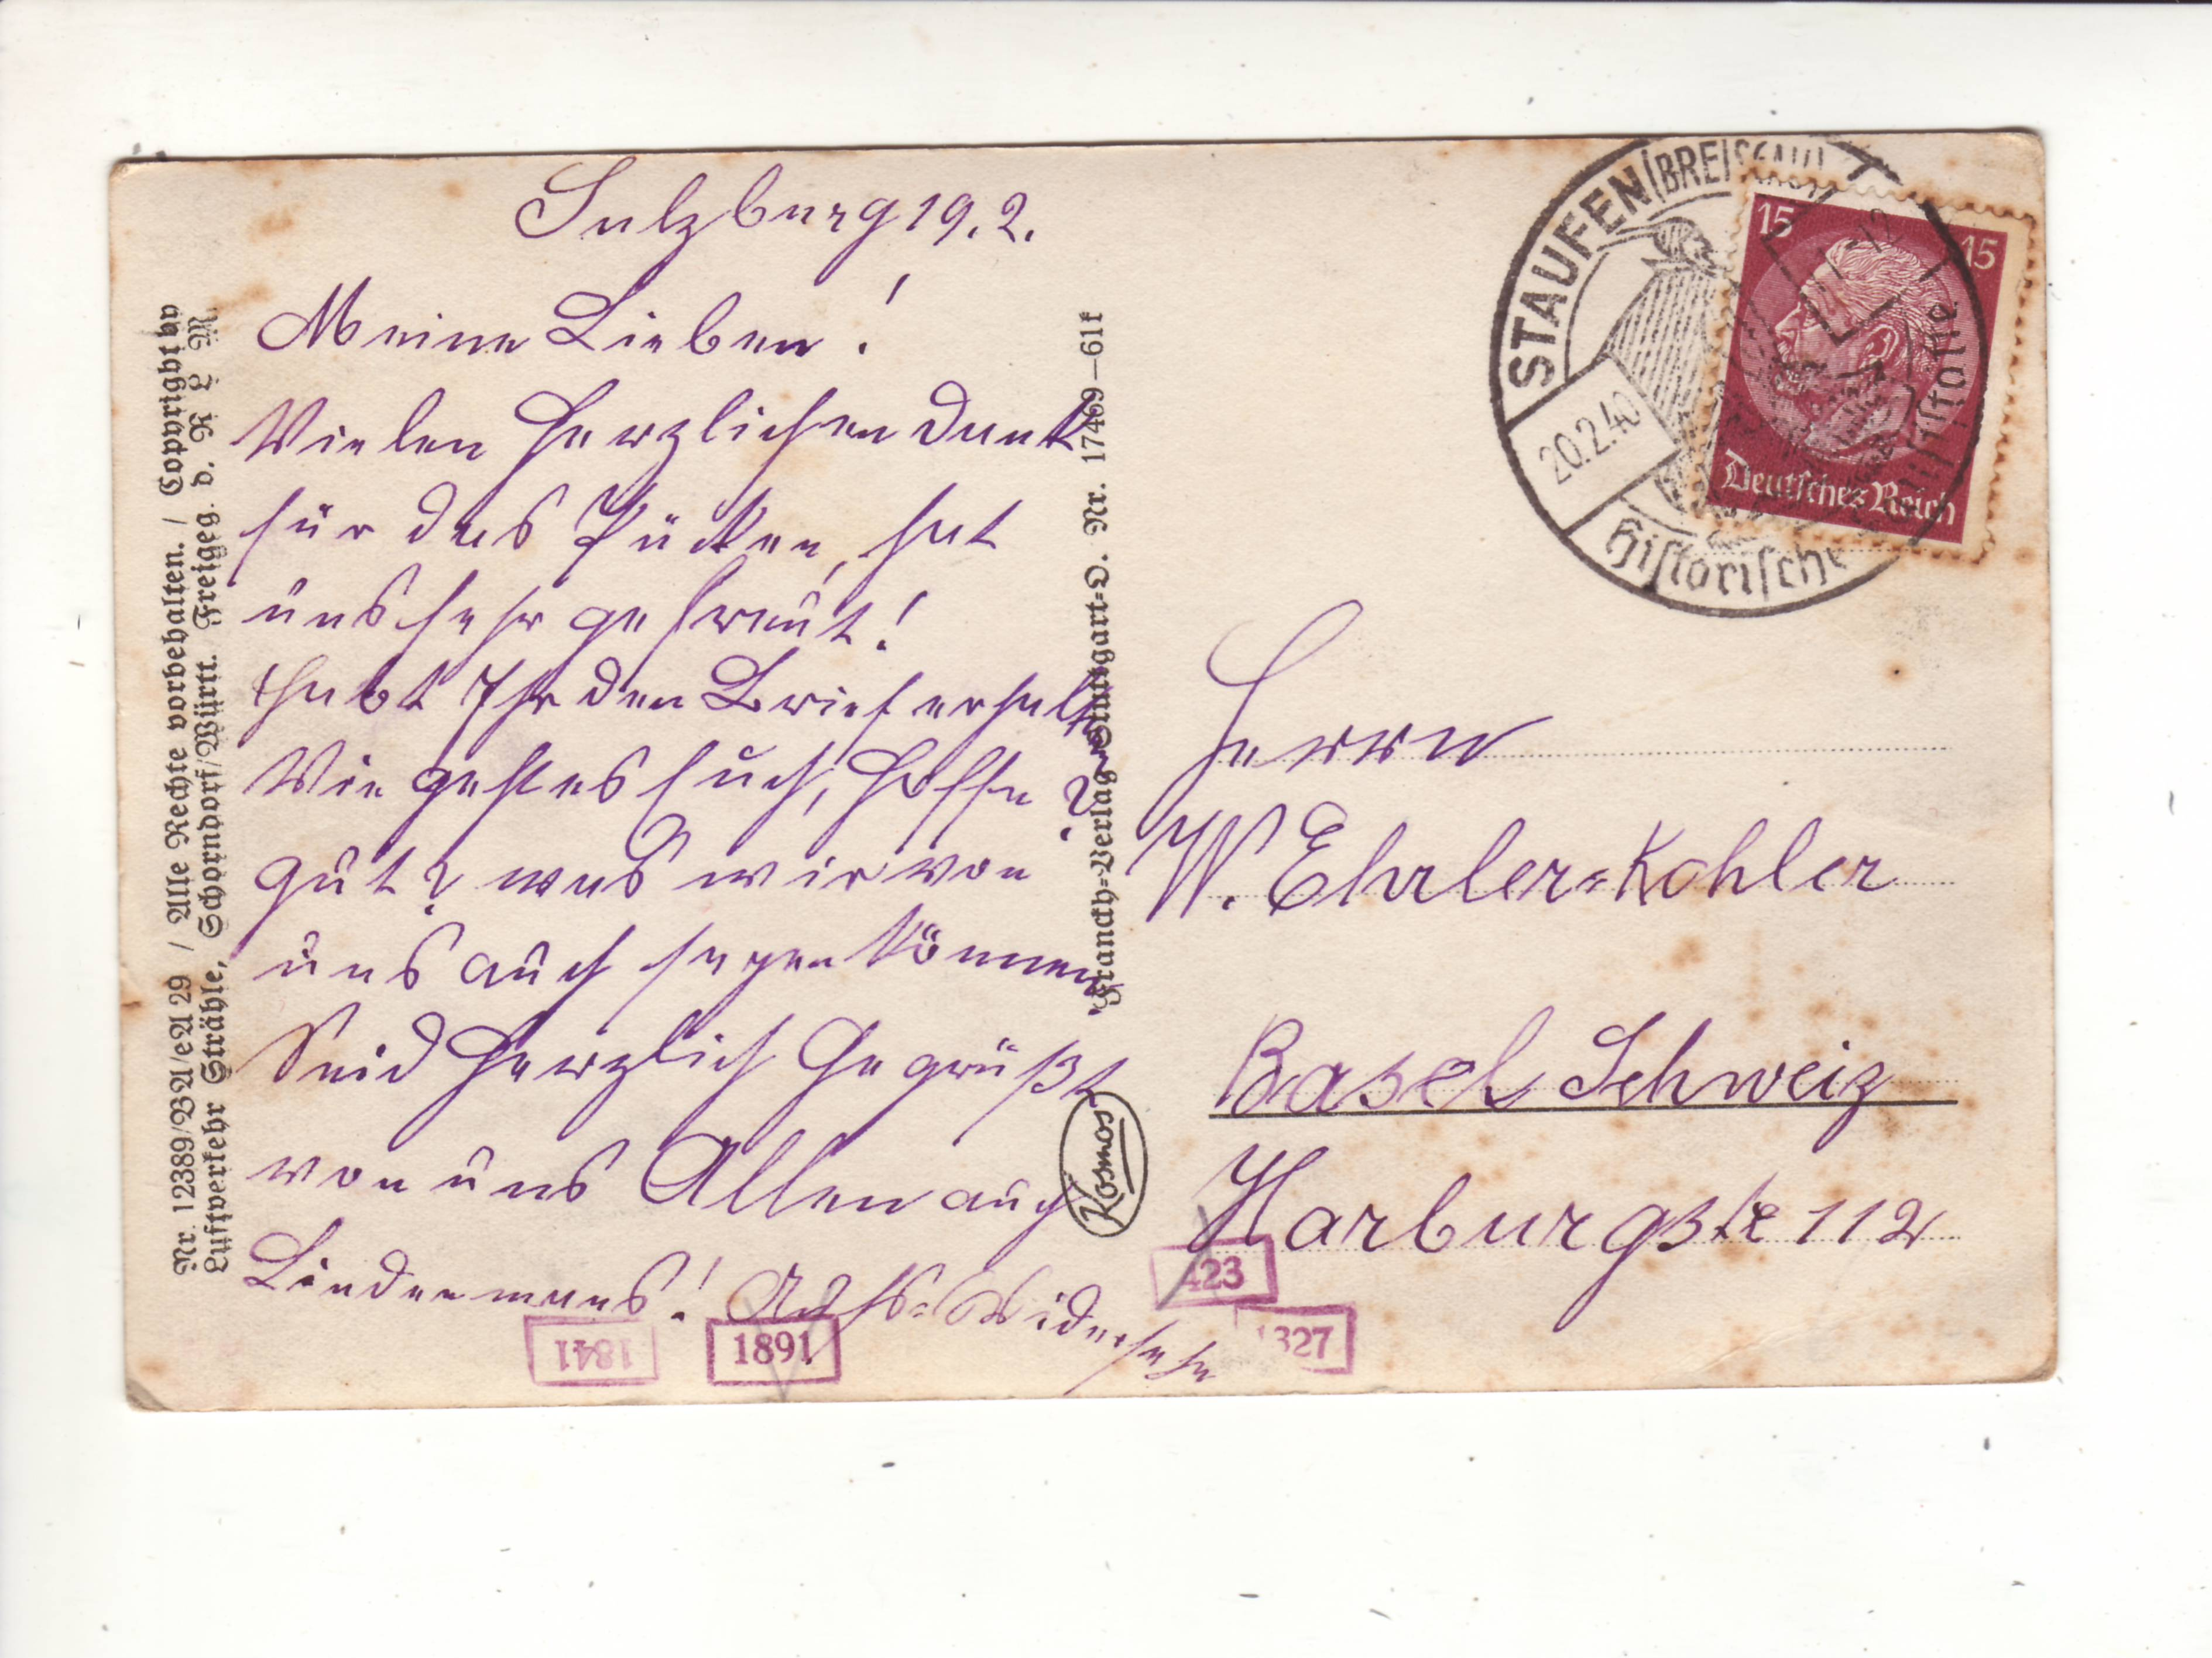 Sulzburg 19. 2.
Meine Lieben!
Vielen herzlichen Dank
für das Päcken, hat
uns sehr gefreut!
Habt Ihr den Brief erhalten?
Wie geht es Euch, hoffe
gut? was wir von
uns auch sagen können
Seid herzlich Gegrüßt
von uns Allen auch
Lindenmanns! Aufs-Widersehn
Nr. 12389/BA/eA 29 / Alle Rechte vorbehalten. / Copyright by
Luftverkehr Strähle, Schorndorf/Württ. Freigeg. d. R L M
Franckh-Verlag Stuttgart-O. Nr. 17469—61f
Kosmos
STAUFEN (BREISGAU)
20.2.40
Historische
15 15
Deutsches Reich
Herrn
W. Ehrler-Kohler
Basel Schweiz
Harburgstr 112
423
1327
1841
1891